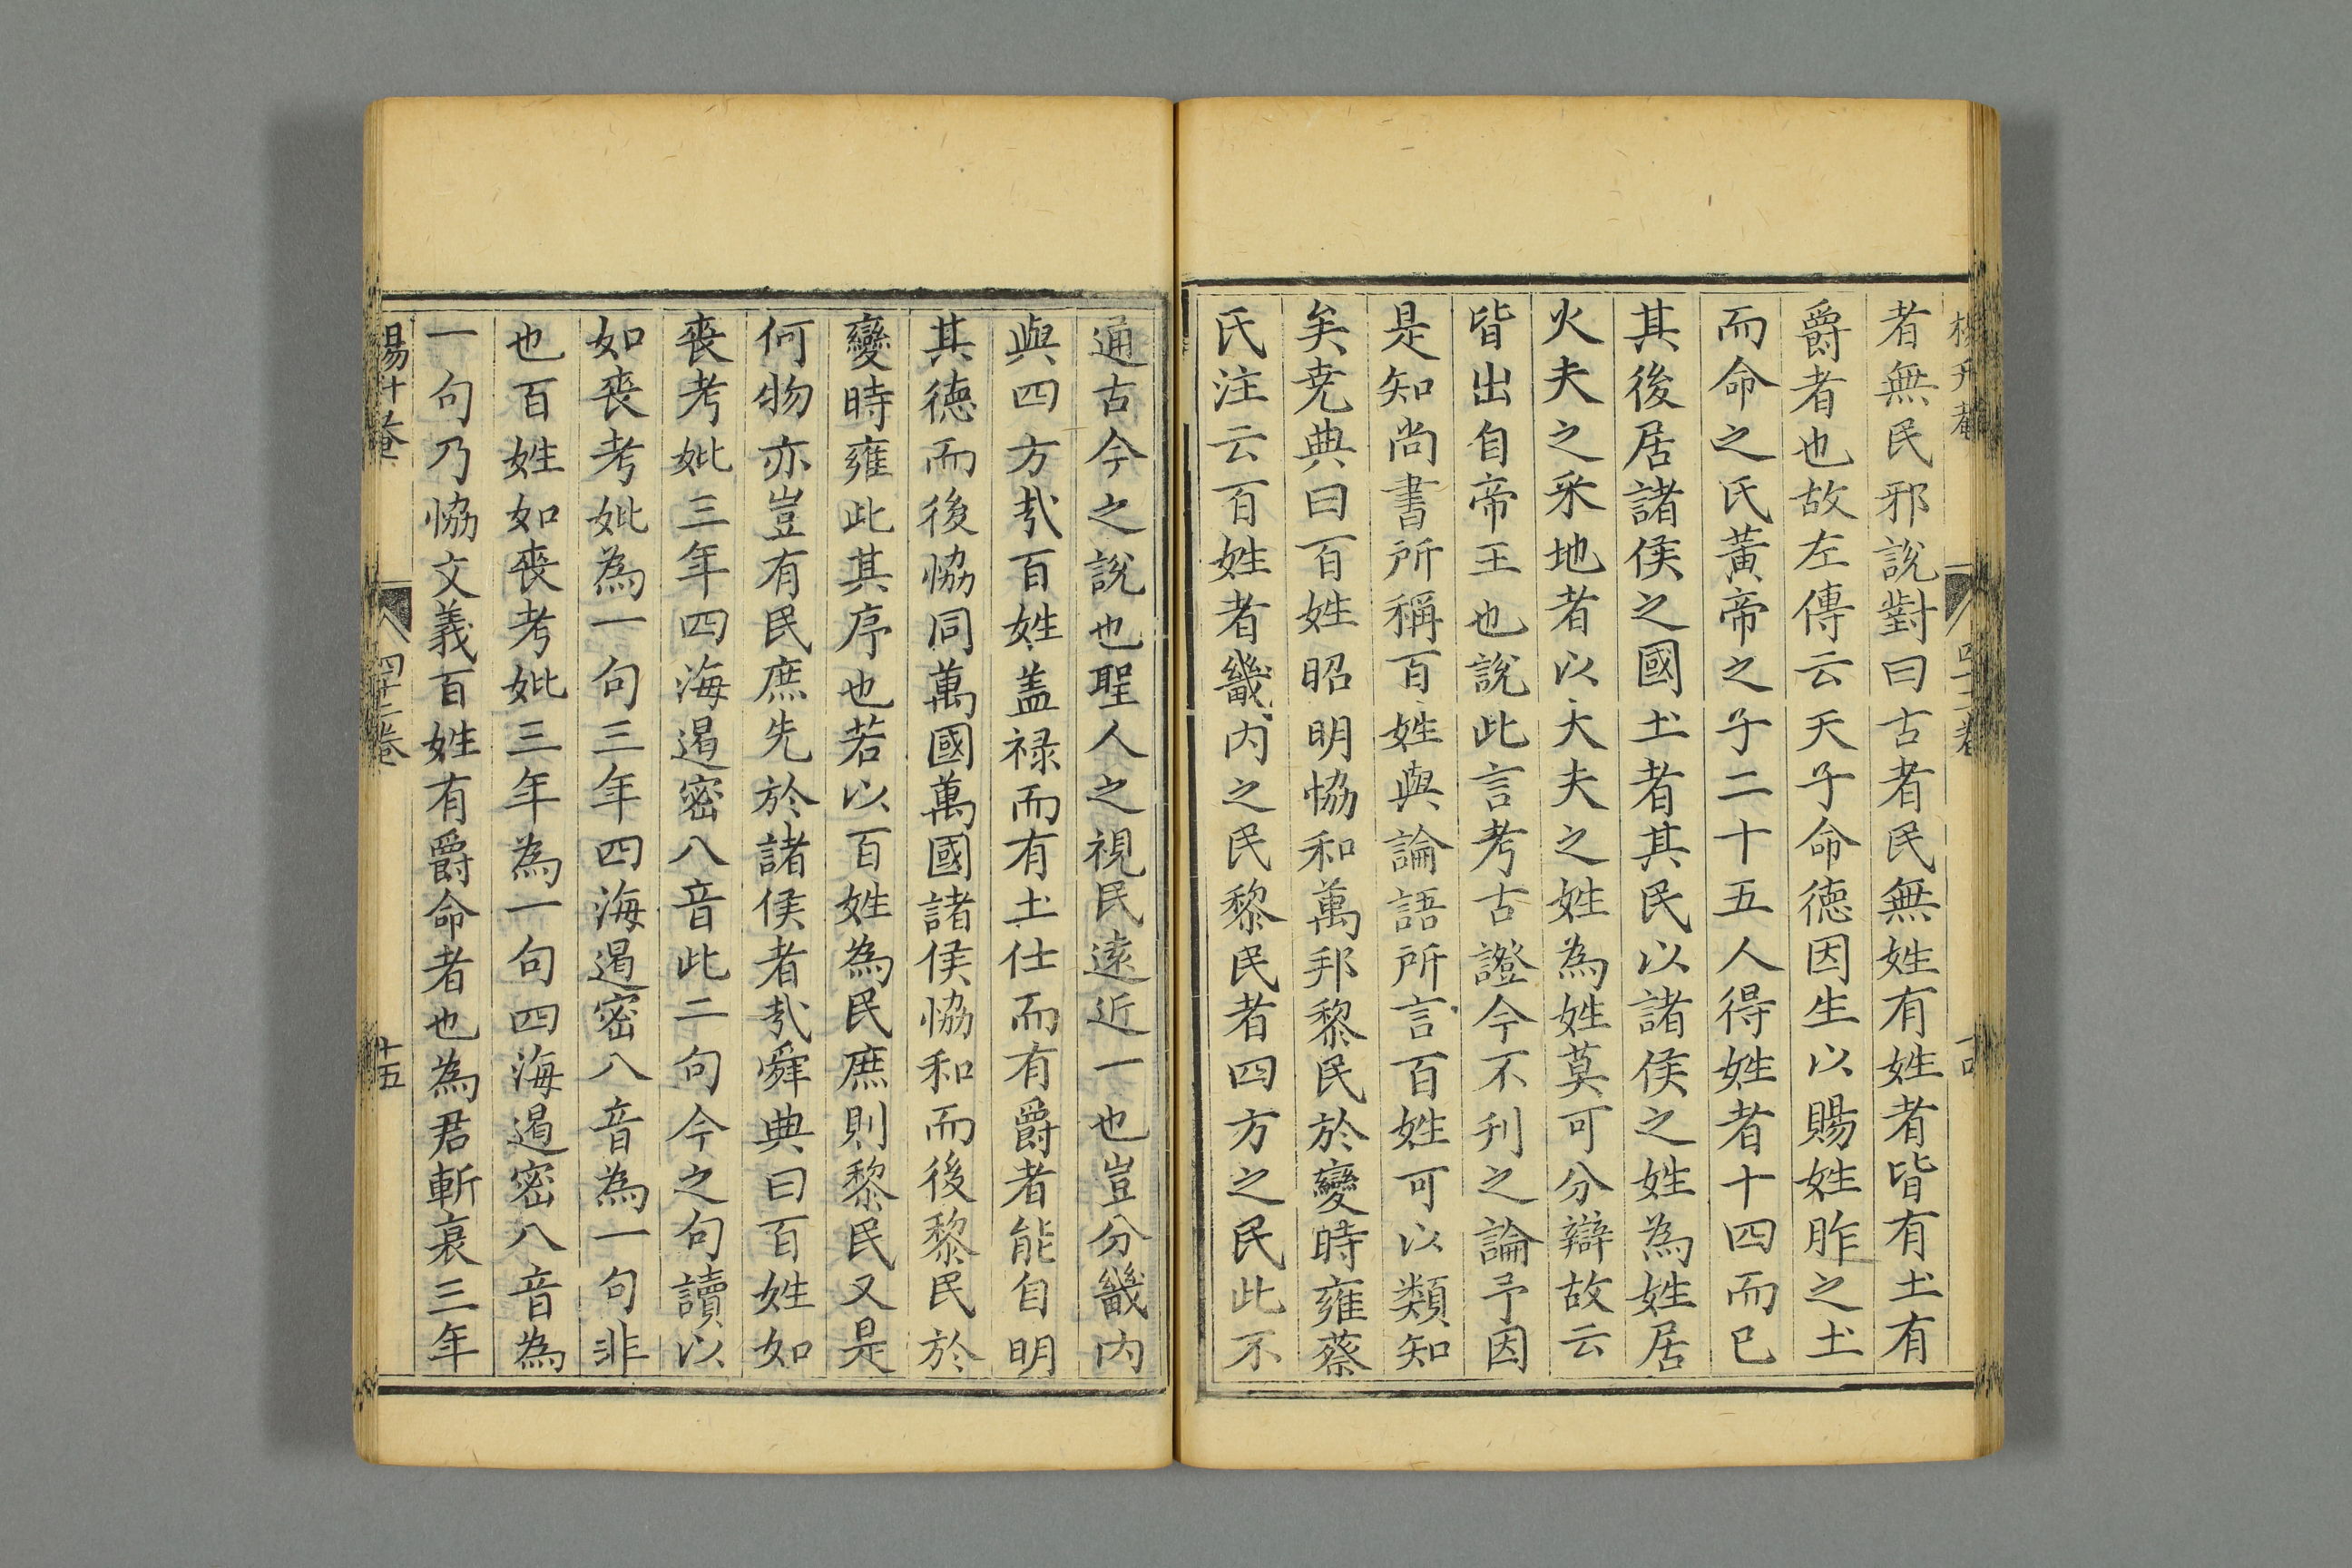 者無民邪說對曰古者民無姓有姓者皆有土有
爵者也故左傳云天子命德因生以賜姓胙之土
而命之氏黃帝之子二十五人得姓者十四而已
其後居諸侯之國土者其民以諸侯之姓為姓居
大夫之采地者以大夫之姓為姓莫可分辯故云
皆出自帝王也說此言考古證今不刊之論予因
是知尚書所稱百姓與論語所言百姓可以類知
矣尭典曰百姓昭明協和萬邦黎民於變時雍蔡
氏注云百姓者畿內之民黎民者四方之民此不
通古今之說也聖人之視民遠近一也豈分畿內
與四方哉百姓盖禄而有土仕而有爵者能自明
其德而後恊同萬國萬國諸侯恊和而後黎民於
變時雍此其序也若以百姓為民庶則黎民又是
何物亦豈有民庶先於諸侯者哉舜典曰百姓如
喪考妣三年四海遏密八音此二句今之句讀以
如喪考妣為一句三年四海遏密八音為一句非
也百姓如喪考妣三年為一句四海遏密八音為
一句乃恊文義百姓有爵命者也為君斬衰三年
四十二卷
十五